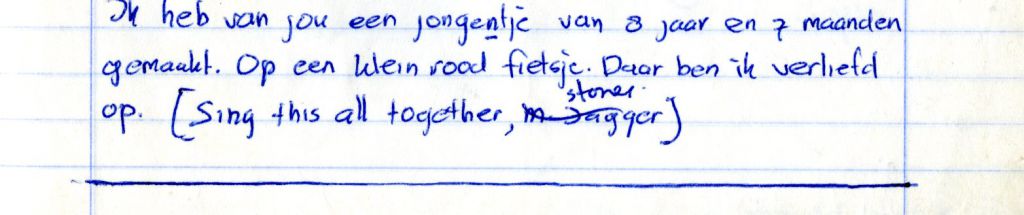 Ik heb van jou een jongentje van 8 jaar en 7 maanden
gemaakt. Op een klein rood fietsje. Daar ben ik verliefd
stones.
op. [Sing this all together, m Jagger]